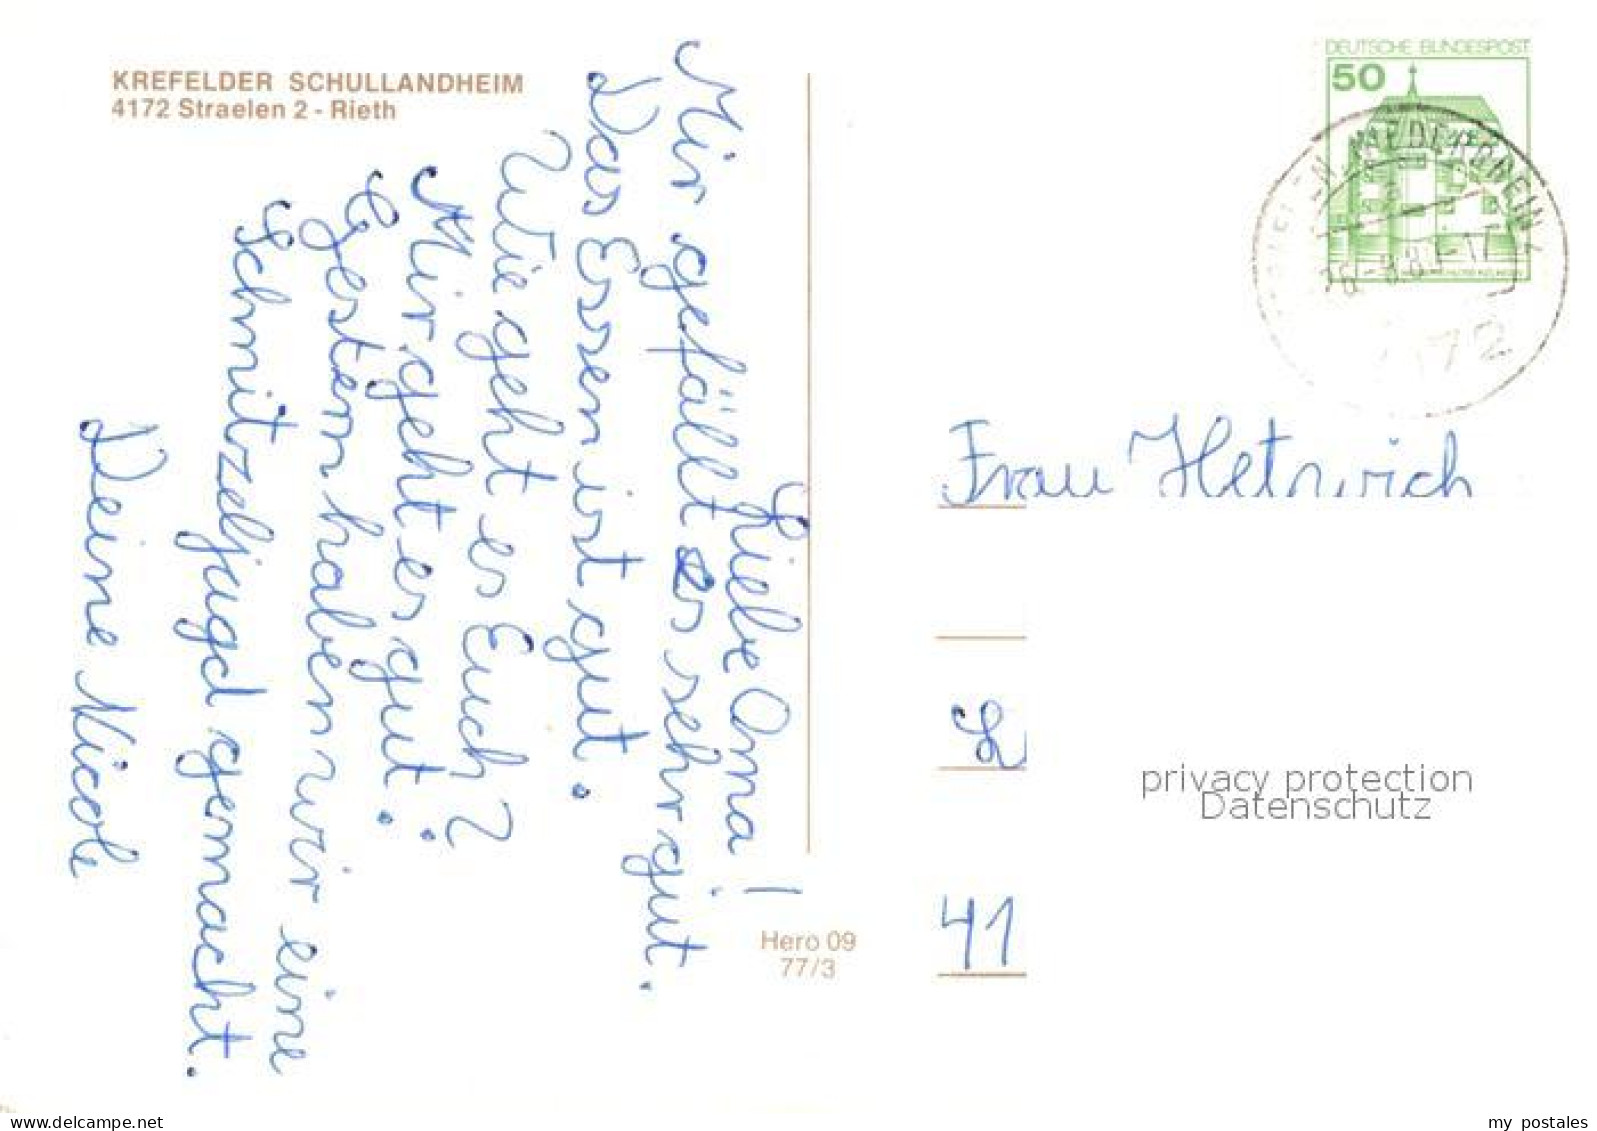 KREFELDER SCHULLANDHEIM
4172 Straelen 2 - Rieth
Liebe Oma!
Mir gefällt es sehr gut.
Das Essen ist gut.
Wie geht es Euch?
Mir geht es gut.
Gestern haben wir eine
Schnitzeljagd gemacht.
Deine Nicole
Hero 09
77/3
DEUTSCHE BUNDESPOST
50
NIEDERRHEIN
4172
Frau
L
41
privacy protection
Datenschutz
www.delcampe.net
my_postales